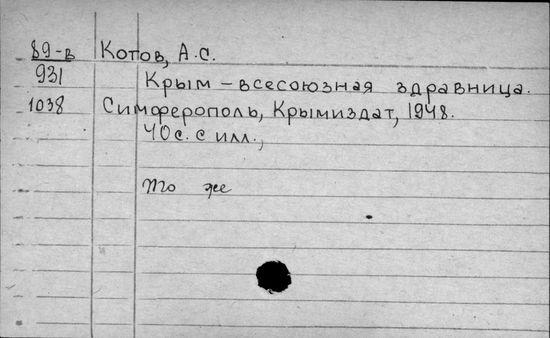 89-в Котов, А.С.
931 Крым - всесоюзная здравница.
1038 Симферополь, Крымиздат, 1948.
40 с. с илл.,
То же